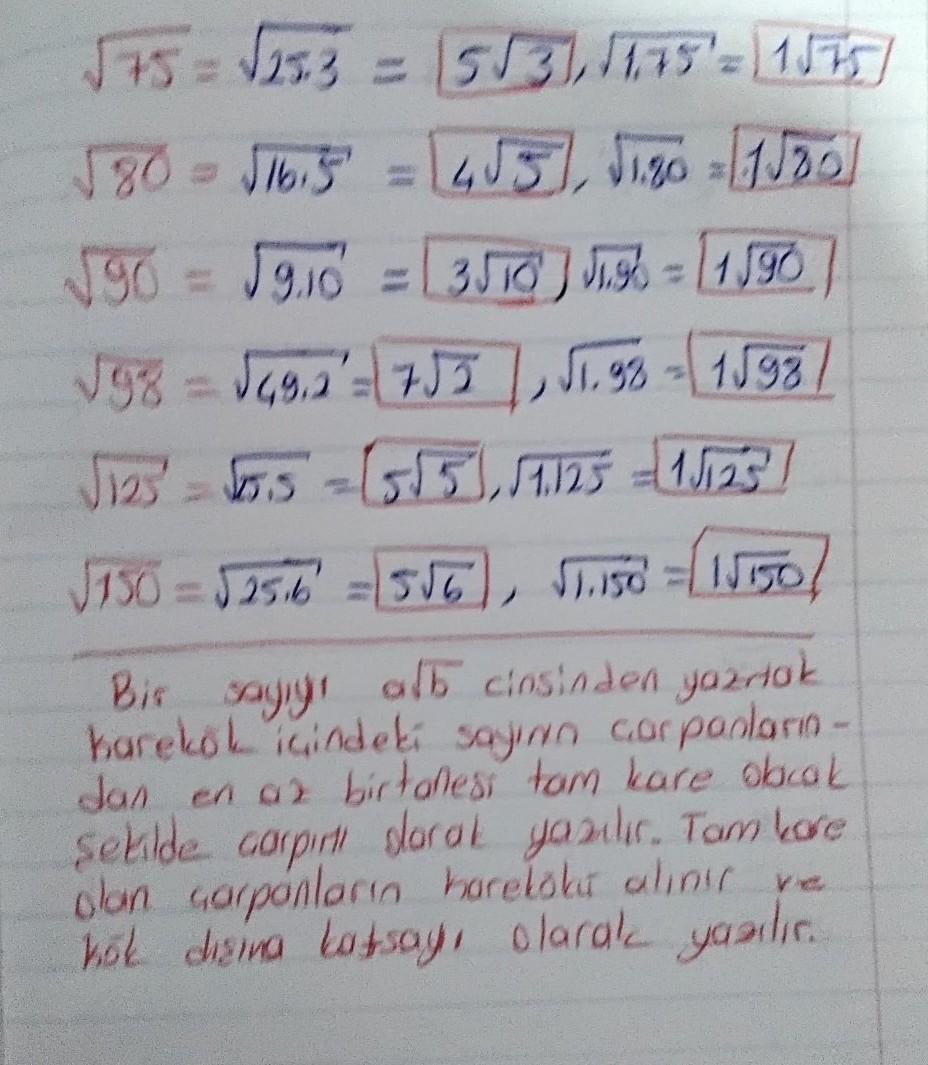 √75 = √25.3 = 5√3, √1.75 = 1√75
√80 = √16.5 = 4√5, √1.80 = 1√80
√90 = √9.10 = 3√10, √1.90 = 1√90
√98 = √49.2 = 7√2, √1.98 = 1√98
√125 = √25.5 = 5√5, √1.125 = 1√125
√150 = √25.6 = 5√6, √1.150 = 1√150
Bir sayıyı a√b cinsinden yazmak
karekök içindeki sayının çarpanların-
dan en az birtanesi tam kare olacak
şekilde çarpım olarak yazılır. Tam kare
olan çarpanların karekökü alınır ve
kök dışına katsayı olarak yazılır.